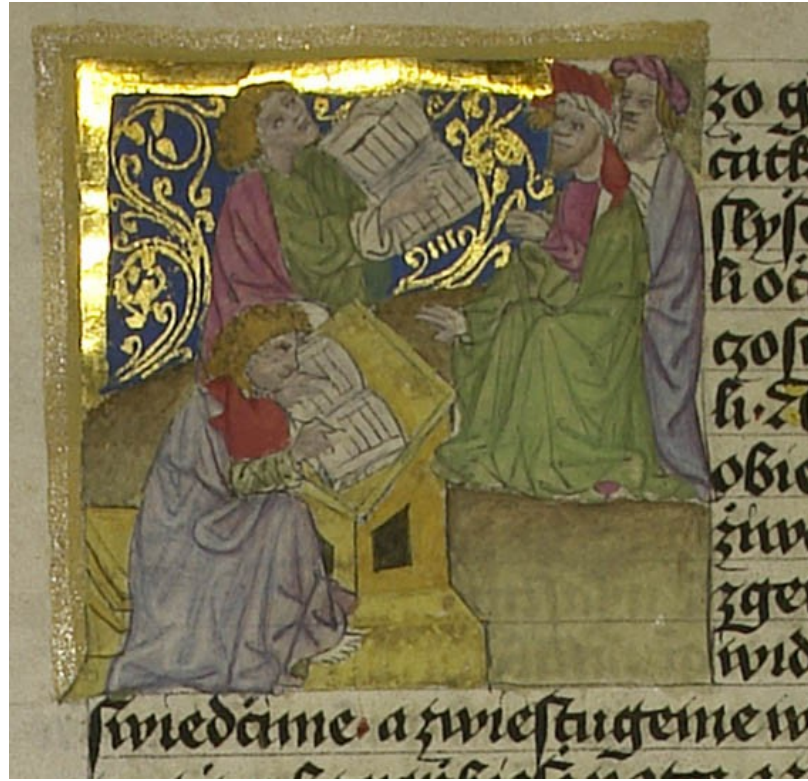 zo g
ċatk
ſlyſ
li oċ
czoſ
li·
obie
żiw
zge
wid
ſwiedċime· a zwieſtugeme w